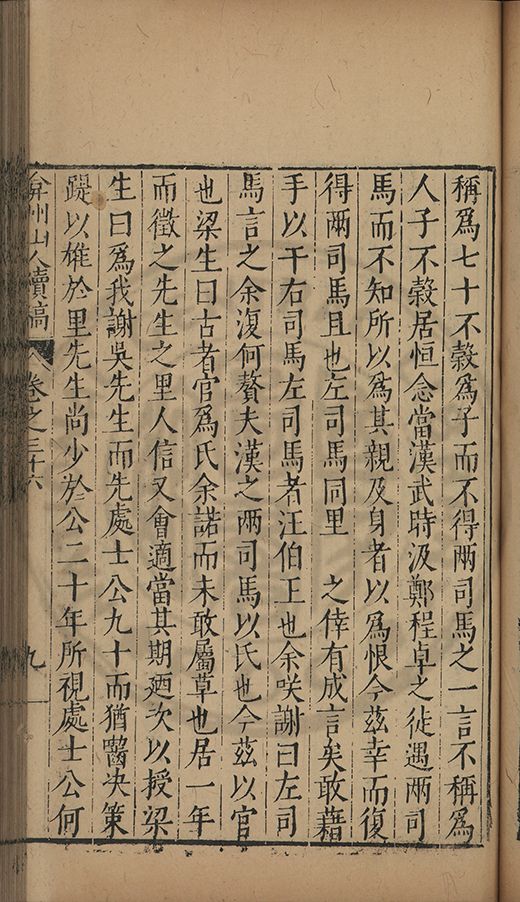 稱爲七十不榖爲子而不得兩司馬之一言不稱爲
人子不榖居恒念當漢武時汲鄭程卓之徒遇兩司
馬而不知所以爲其親及身者以爲恨今茲幸而復
得兩司馬且也左司馬同里　之倖有成言矣敢藉
手以干右司馬左司馬者汪伯玉也余咲謝曰左司
馬言之余復何贅夫漢之兩司馬以氏也今茲以官
也梁生曰古者官爲氏余諾而未敢屬草也居一年
而徵之先生之里人信又會適當其期廼次以授梁
生曰爲我謝吳先生而先處士公九十而猶毉决策
踶以雄於里先生尚少於公二十年所視處士公何
弇州山人續稿　卷之三十六　九